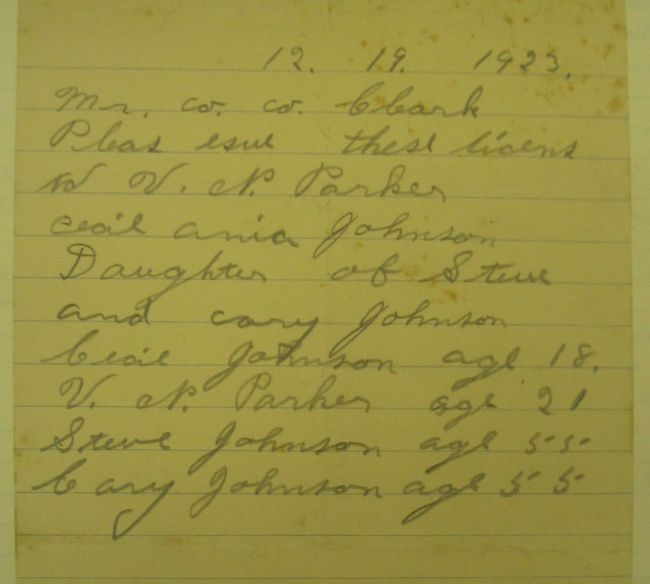 12. 19. 1923.
Mr. co. co. Clark
Pleas esue these licens
to V. N. Parker
cecil ania Johnson
Daughter of Steve
and cary Johnson
Cecil Johnson age 18.
V. N. Parker age 21
Steve Johnson age 55
Cary Johnson age 55